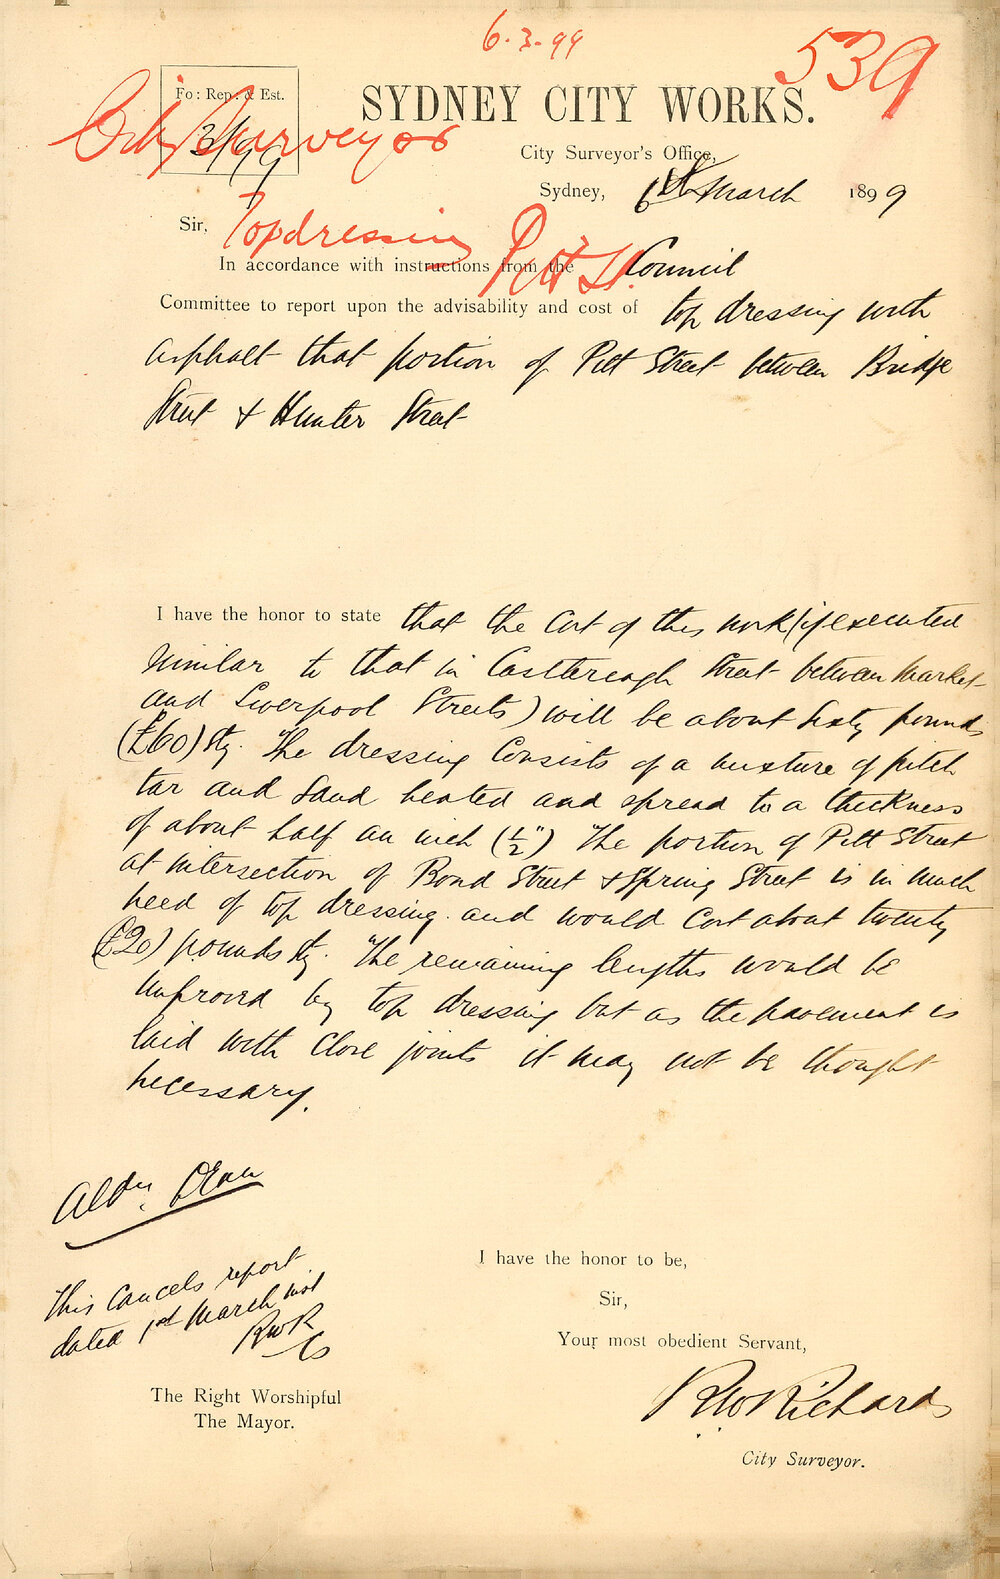 6.3.99
539
Fo: Rep. & Est.
3/99
City Surveyor
SYDNEY CITY WORKS.
City Surveyor's Office,
Sydney, 6th March 1899
Sir,
Topdressing Pitt St.
In accordance with instructions from the Council
Committee to report upon the advisability and cost of top dressing with
asphalt that portion of Pitt Street between Bridge
Street & Hunter Street
I have the honor to state that the cost of this work (if executed
similar to that in Castlereagh Street between Market
and Liverpool Streets) will be about sixty pounds
(£60) stg. The dressing consists of a mixture of pitch
tar and sand heated and spread to a thickness
of about half an inch (½") The portion of Pitt Street
at intersection of Bond Street & Spring Street is in much
need of top dressing and would cost about twenty
(£20) pounds stg. The remaining lengths would be
improved by top dressing but as the pavement is
laid with close joints it may not be thought
necessary.
Aldn. Dean
This cancels report
dated 1st March inst
RWR
CS
I have the honor to be,
Sir,
Your most obedient Servant,
The Right Worshipful
The Mayor.
RW Richards
City Surveyor.